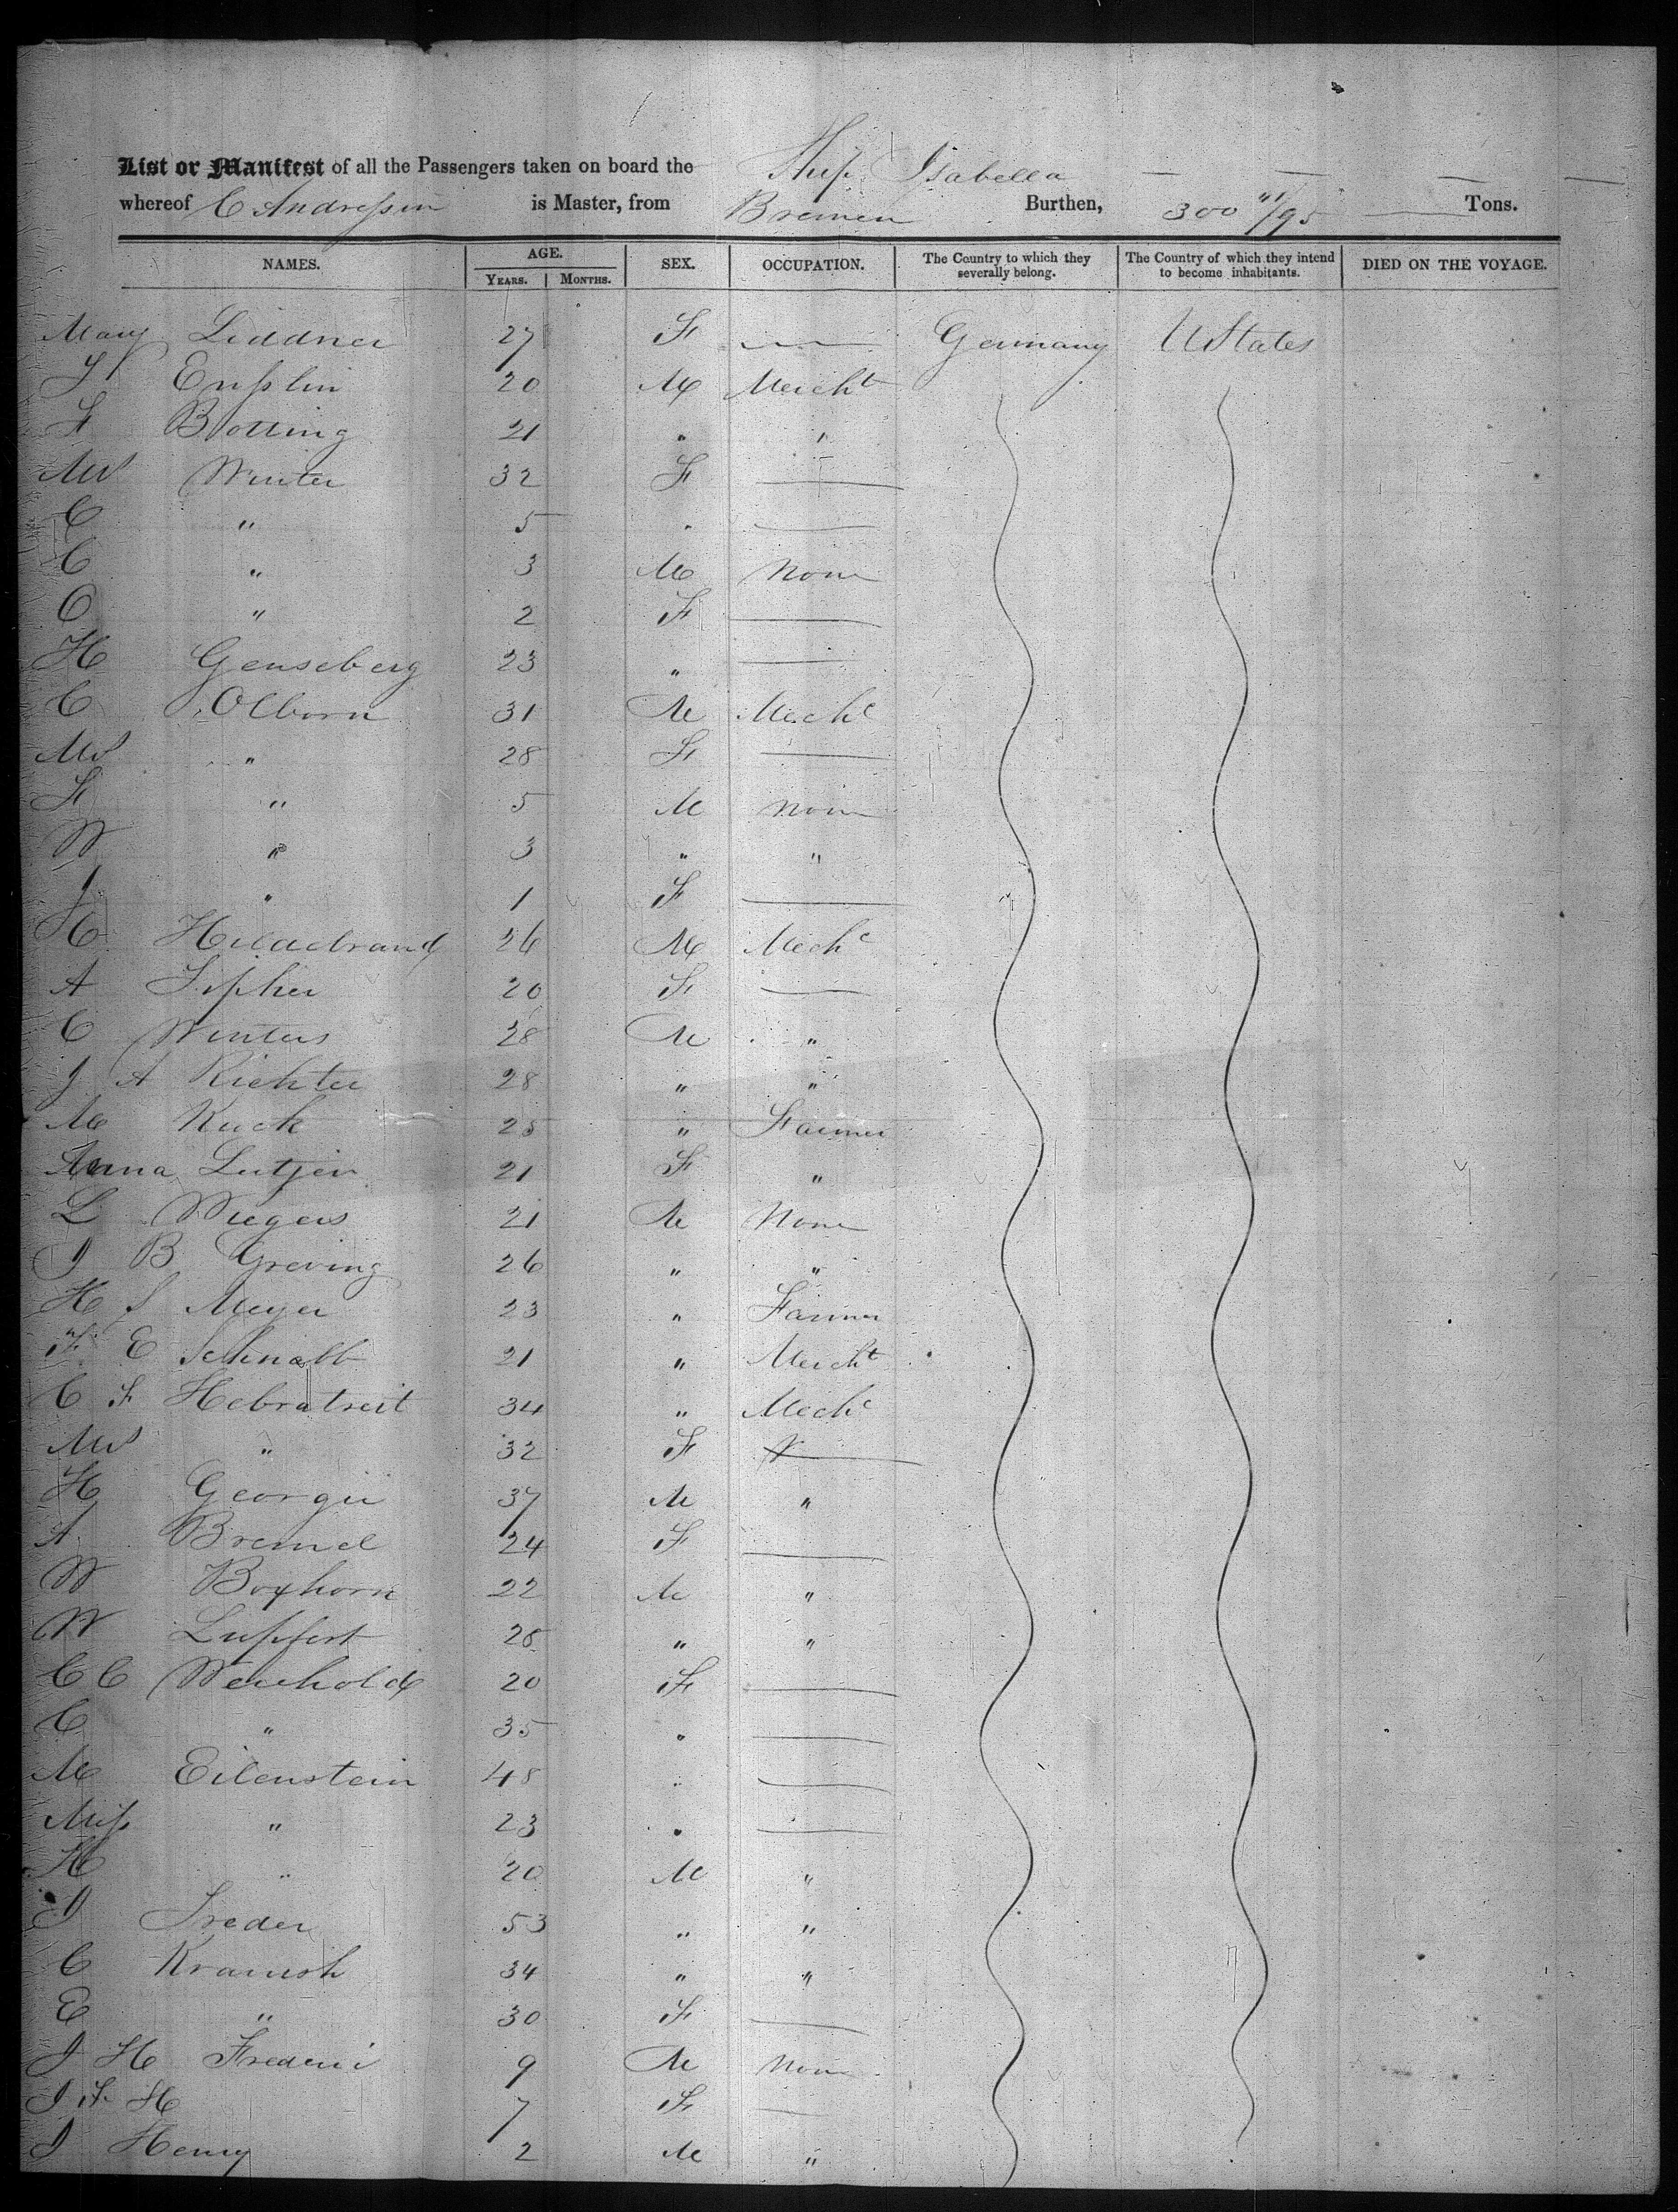 List or Manifest of all the Passengers taken on board the Ship Isabella
whereof C Andressen is Master, from Bremen Burthen, 300 41/95 Tons.
NAMES. AGE. SEX. OCCUPATION. The Country to which they severally belong. The Country of which they intend to become inhabitants. DIED ON THE VOYAGE.
YEARS. MONTHS.
Mary Liddner 27 F — Germany UStates
Enslin 20 M Mercht
F Botting 21 " "
Mrs Winter 32 F —
C " 5 " —
C " 3 M None
C " 2 F —
H Genseberg 23 " —
C Olborn 31 M Mechc
Mrs " 28 F —
F " 5 M None
W " 3 " "
J " 1 F —
H Hildebrand 26 M Mechc
A 20 F —
C Winters 28 M "
J A Richter 28 " "
M Kuck 25 " Farmer
Anna Lutjen 21 F "
L Wiegers 21 M None
J B Greving 26 " "
H J Meyer 23 " Farmer
F E Schnabb 21 " Mercht
C F Hebratreit 34 " Mechc
Mrs " 32 F —
H Georgii 37 M "
A Bremel 24 F —
W Boxhorn 22 M "
W Lupfert 28 " "
C C Weichold 20 F —
C " 35 " —
M Eilenstein 48 " —
Miss " 23 " —
H " 20 M "
J Sreder 53 " "
C Kramish 34 " "
E " 30 F —
J H Frederici 9 M None
J F H 7 F —
J Henry 2 M "